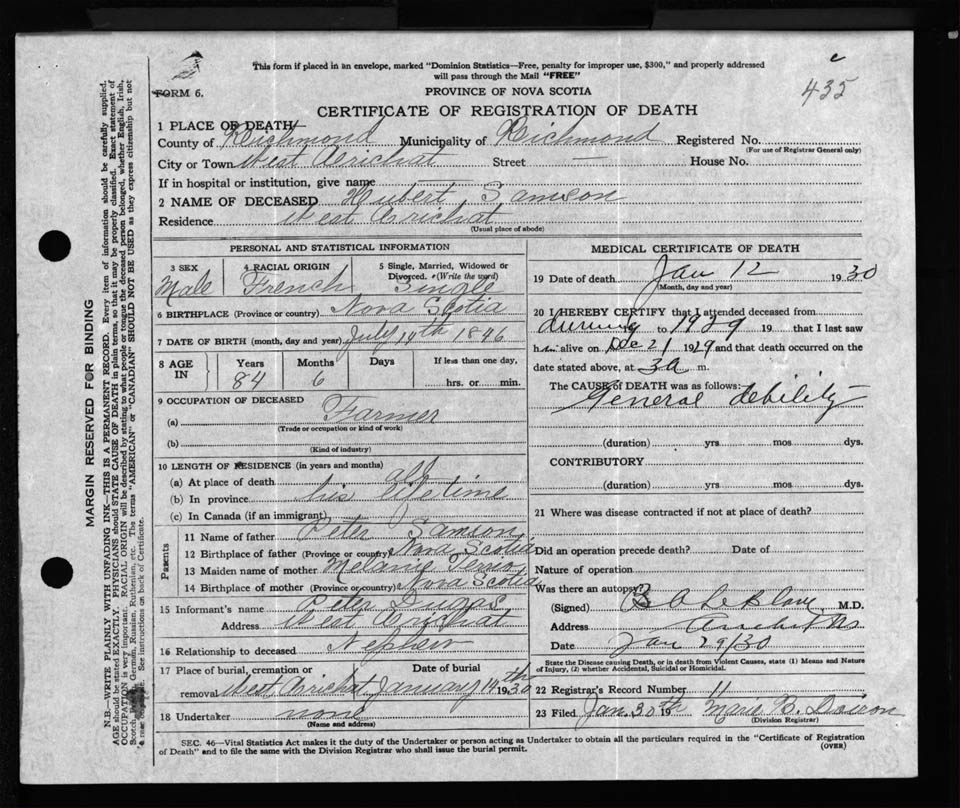 This form if placed in an envelope, marked "Dominion Statistics—Free, penalty for improper use, $300," and properly addressed
will pass through the Mail "FREE"
435
FORM 6.
PROVINCE OF NOVA SCOTIA
CERTIFICATE OF REGISTRATION OF DEATH
1 PLACE OF DEATH
County of Richmond Municipality of Richmond Registered No.
(For use of Registrar General only)
City or Town West Arichat Street — House No.
If in hospital or institution, give name
2 NAME OF DECEASED Hubert Samson
Residence West Arichat
(Usual place of abode)
PERSONAL AND STATISTICAL INFORMATION
3 SEX 4 RACIAL ORIGIN 5 Single, Married, Widowed or
Divorced. (Write the word)
Male French Single
6 BIRTHPLACE (Province or country) Nova Scotia
7 DATE OF BIRTH (month, day and year) July 14th 1846
8 AGE IN Years Months Days If less than one day,
84 6 hrs. or min.
9 OCCUPATION OF DECEASED
(a) Farmer
(Trade or occupation or kind of work)
(b)
(Kind of industry)
10 LENGTH OF RESIDENCE (in years and months)
(a) At place of death all
(b) In province his lifetime
(c) In Canada (if an immigrant)
Parents
11 Name of father Peter Samson
12 Birthplace of father (Province or country) Nova Scotia
13 Maiden name of mother Melanie
14 Birthplace of mother (Province or country) Nova Scotia
15 Informant's name Peter Dugas
Address West Arichat
16 Relationship to deceased Nephew
17 Place of burial, cremation or Date of burial
removal West Arichat January 14th 1930
18 Undertaker none
(Name and address)
MEDICAL CERTIFICATE OF DEATH
19 Date of death Jan 12 1930
(Month, day and year)
20 I HEREBY CERTIFY that I attended deceased from
during to 1929 19 that I last saw
h alive on Dec 21 1929 and that death occurred on
date stated above, at 3 a m.
The CAUSE of DEATH was as follows:
General debility
(duration) yrs mos dys.
CONTRIBUTORY
(duration) yrs mos dys.
21 Where was disease contracted if not at place of death?
Did an operation precede death? Date of
Nature of operation
Was there an autopsy?
(Signed) M.D.
Address Arichat NS
Date Jan 29/30
State the Disease causing Death, or in death from Violent Causes, state (1) Means and Nature
of Injury, (2) whether Accidental, Suicidal or Homicidal.
22 Registrar's Record Number 11
23 Filed Jan. 30th 19 Marie B. Doiron
(Division Registrar)
SEC. 46—Vital Statistics Act makes it the duty of the Undertaker or person acting as Undertaker to obtain all the particulars required in the "Certificate of Registration
of Death" and to file the same with the Division Registrar who shall issue the burial permit.
(OVER)
MARGIN RESERVED FOR BINDING
N.B.—WRITE PLAINLY WITH UNFADING INK—THIS IS A PERMANENT RECORD. Every item of information should be carefully supplied.
AGE should be stated EXACTLY. PHYSICIANS should STATE CAUSE OF DEATH in plain terms, so that it may be properly classified. Exact statement of
OCCUPATION is very important. RACIAL ORIGIN will be described by stating to what people or tongue the deceased person belonged, whether English, Irish,
Scotch, German, Russian, Ruthenian, etc. The terms "AMERICAN" or "CANADIAN" SHOULD NOT BE USED as they express citizenship but not
See instructions on back of Certificate.